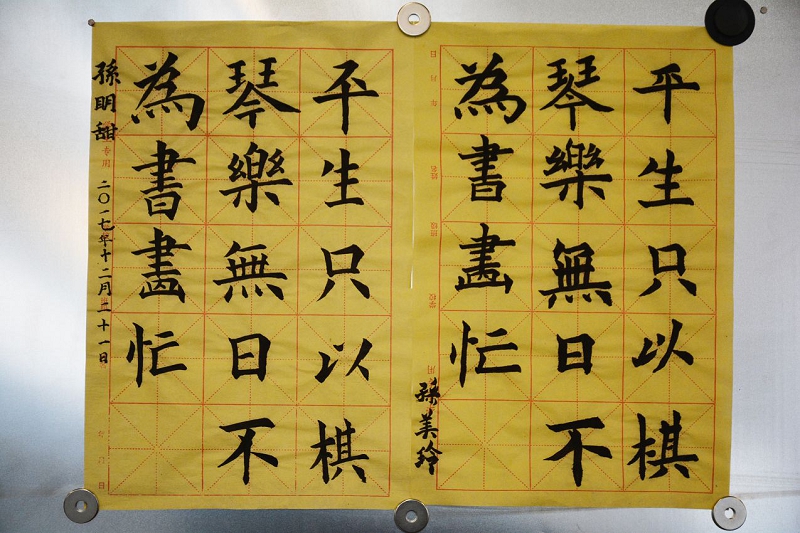 平生只以棋
琴樂無日不
為書畫忙
孫美玲
平生只以棋
琴樂無日不
為書畫忙
孫明甜
二〇一七年十二月二十一日